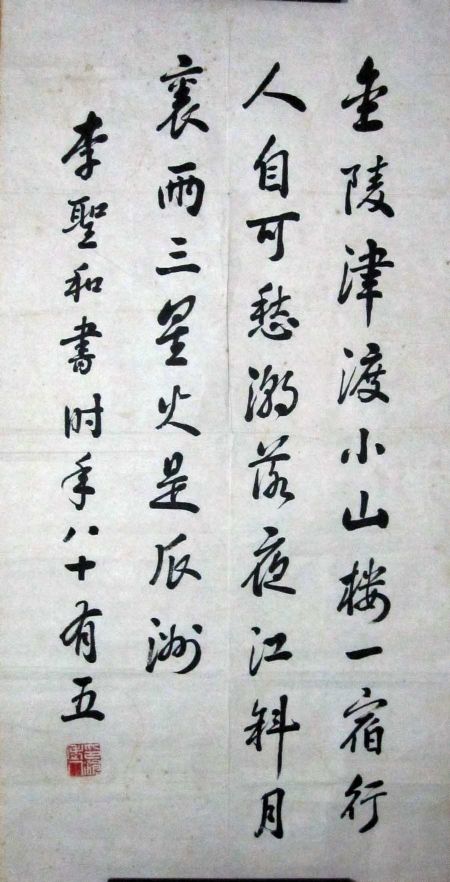 金陵津渡小山楼一宿行
人自可愁潮落夜江斜月
裏两三星火是瓜洲
李聖和書时年八十有五